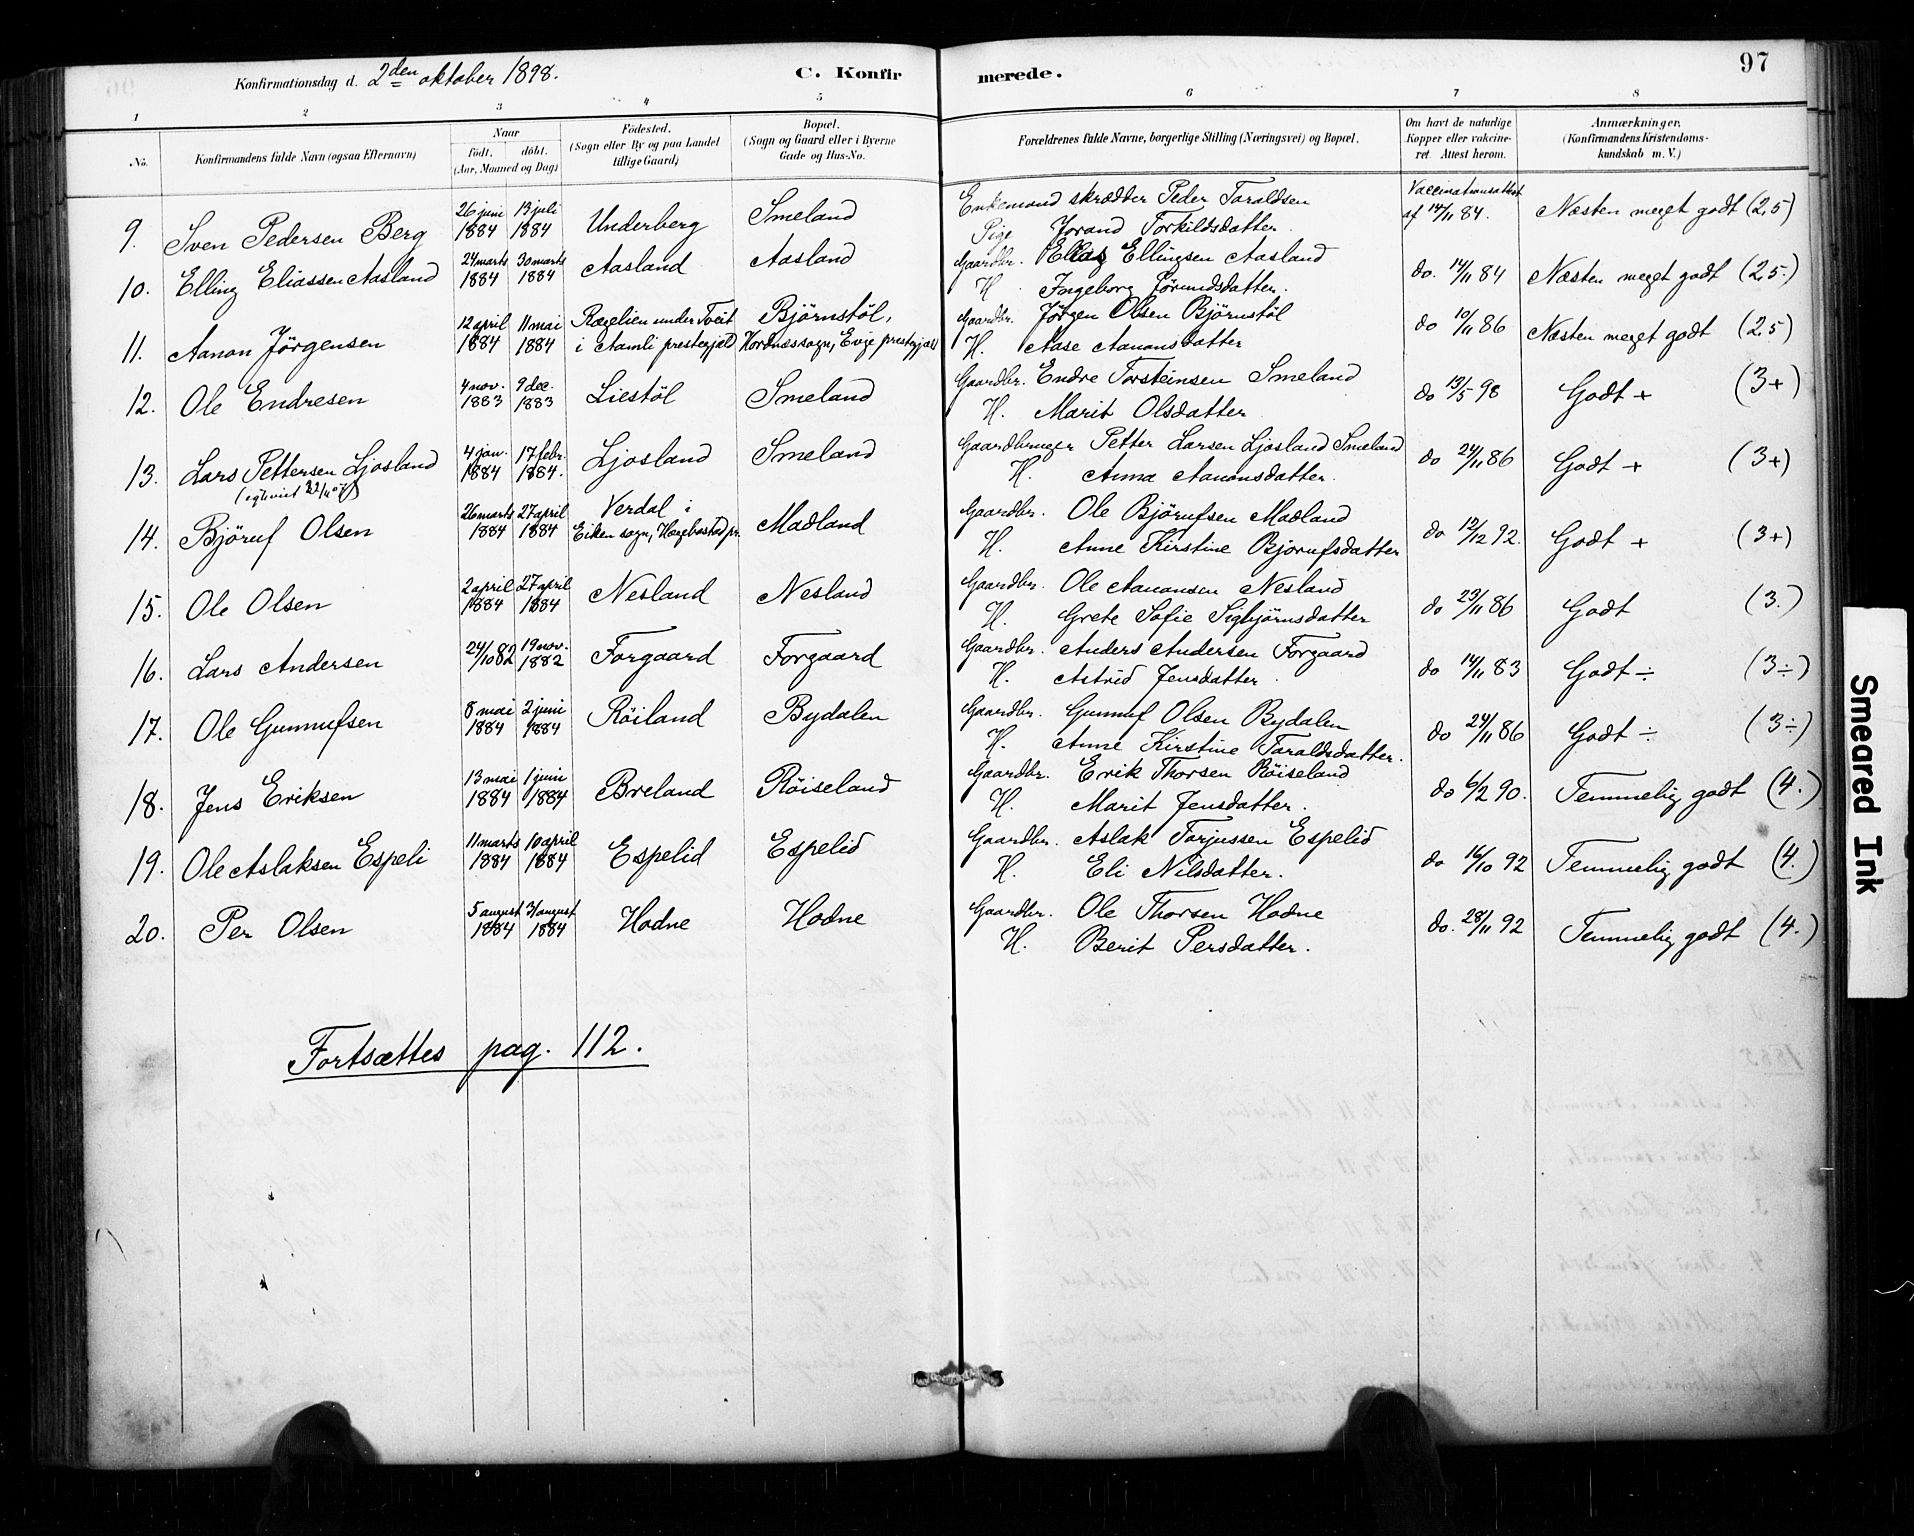 97
Konfirmationsdag d. 2den oktober 1898.
C. Konfirmerede.
1 2 3 4 5 6 7 8
No. Konfirmandens fulde Navn (ogsaa Efternavn) Naar født. døbt. (Aar, Maaned og Dag) Fødested. (Sogn eller By og paa Landet tillige Gaard) Bopæl. (Sogn og Gaard eller i Byerne Gade og Hus-No. Forældrenes fulde Navne, borgerlige Stilling (Næringsvei) og Bopæl. Om havt de naturlige Kopper eller vaccineret. Attest herom. Anmærkninger. (Konfirmandens Kristendomskundskab m. V.)
9. Sven Pedersen Berg 26 juni 1884 13 juli 1884 Underberg Smeland Enkemand skrædder Peder Taraldsen Vaccinationsattest af 14/11 84. Næsten meget godt (2,5)
Pige Jorand Torkildsdatter
10. Elling Eliassen Aasland 24 marts 1884 30 marts 1884 Aasland Aasland Gaardbr. Elias Ellingsen Aasland do. 14/11 84 Næsten meget godt (2,5.)
H. Ingeborg Jörundsdatter.
11. Aanon Jörgensen 12 april 1884 11 mai 1884 Rægelien under Tveit i Aamli prestegjæld Björnstöl, Hordnessogn, Evje prestegjæld Gaardbr. Jörgen Olsen Björnstöl do 10/11 86 Næsten meget godt (2,5)
H. Aase Aanonsdatter
12. Ole Endresen 4 nov. 1883 9 dec. 1883 Liestöl Smeland Gaardbr. Endre Torsteinsen Smeland do 13/5 98 Godt + (3+)
H. Marit Olsdatter
13. Lars Pettersen Ljosland 4 jan. 1884 17 febr. 1884. Ljosland Smeland Gaardbruger Petter Larsen Ljosland Smeland do 24/11 86 Godt + (3+)
H. Anna Aanonsdatter.
14. Björuf Olsen 26 marts 1884 27 april 1884 Verdal i Eiken sogn, Hægebostad pr. Madland Gaardbr. Ole Björufsen Madland do 12/12 92. Godt + (3+)
H. Anne Kirstine Bjorufsdatter
15. Ole Olsen 2 april 1884 27 april 1884 Nesland Nesland Gaardbr. Ole Aanonsen Nesland do 23/11 86 Godt (3.)
H. Grete Sofie Sigbjörnsdatter
16. Lars Andersen 24/10 82 19 nov. 1882 Forgaard Forgaard Gaardbr. Anders Andersen Forgaard do 14/11 83 Godt ÷ (3÷)
H. Astrid Jensdatter.
17. Ole Gunnufsen 8 mai 1884 2 juni 1884 Röiland Bydalen Gaardbr. Gunnuf Olsen Bydalen do 24/11 86 Godt ÷ (3÷)
H. Anne Kirstine Taraldsdatter.
18. Jens Eriksen 13 mai 1884 1 juni 1884 Breland Röiseland Gaardbr. Erik Thorsen Röiseland do 6/2 90. Temmelig godt (4.)
H. Marit Jensdatter.
19. Ole Aslaksen Espeli 11 marts 1884 10 april 1884 Espelid Espelid Gaardbr. Aslak Torjussen Espelid do 16/10 92 Temmelig godt (4.)
H. Eli Nilsdatter.
20. Per Olsen 5 august 1884 31 august 1884 Hodne Hodne Gaardbr. Ole Thorsen Hodne do. 28/11 92 Temmelig godt (4.)
H. Berit Persdatter.
Fortsættes pag. 112.
Smeared Ink